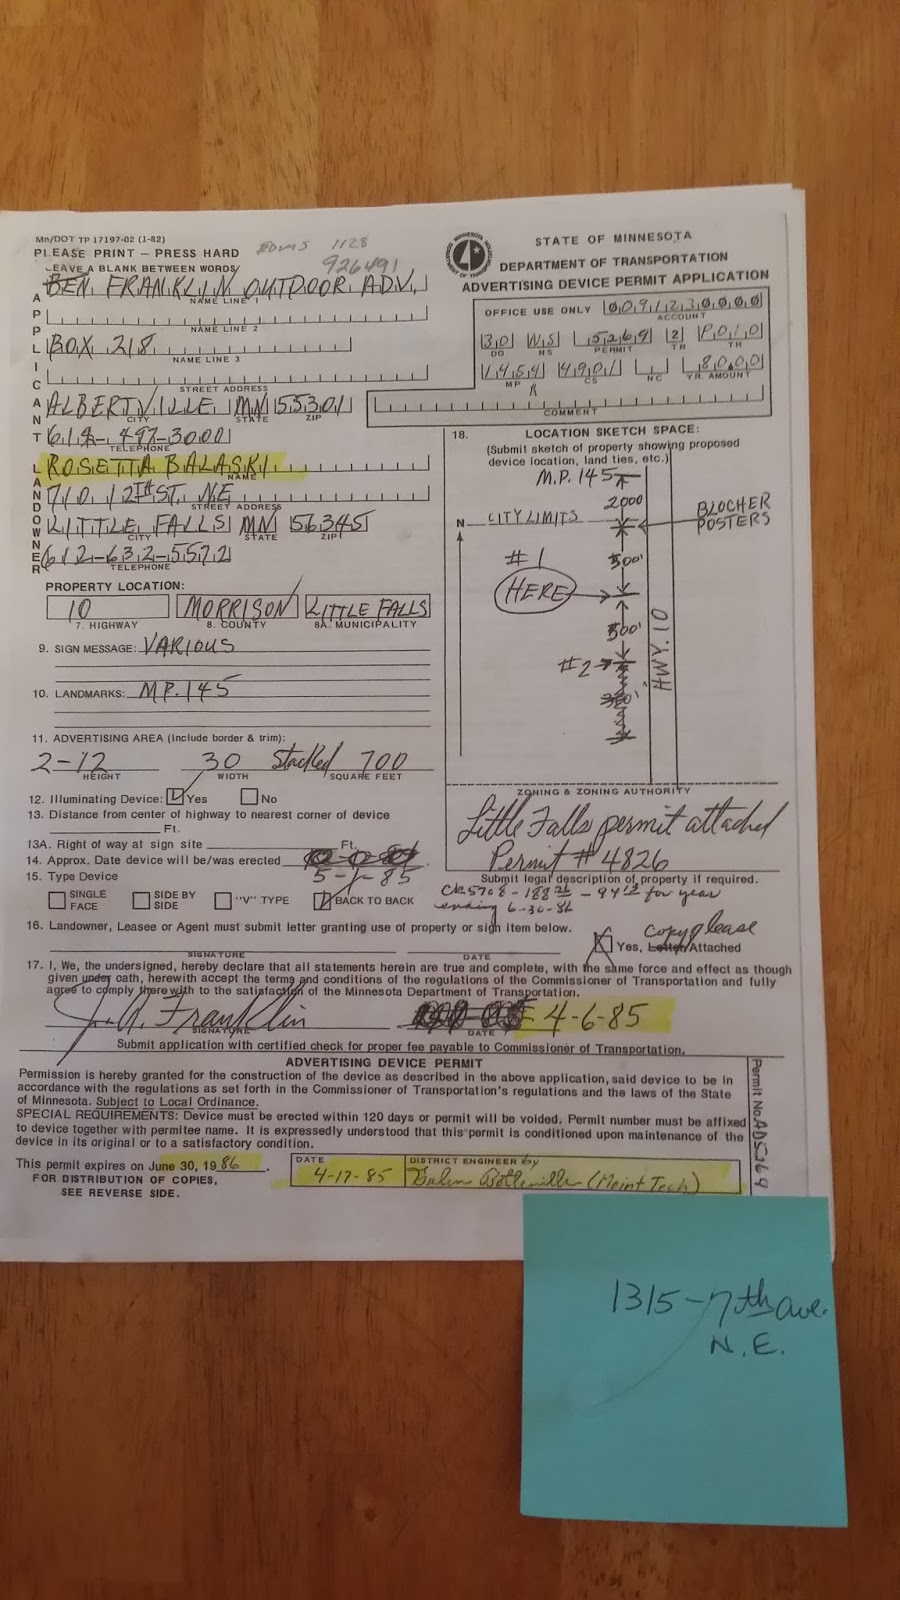 Mn/DOT TP 17197-02 (1-82)
PLEASE PRINT – PRESS HARD
EDMS 1128
926491
LEAVE A BLANK BETWEEN WORDS
STATE OF MINNESOTA
DEPARTMENT OF TRANSPORTATION
ADVERTISING DEVICE PERMIT APPLICATION
APPLICANT
BEN FRANKLIN OUTDOOR ADV.
NAME LINE 1
NAME LINE 2
BOX 218
NAME LINE 3
STREET ADDRESS
ALBERTVILLE MN 55301
CITY STATE ZIP
612-497-3000
TELEPHONE
OFFICE USE ONLY 0091230000
ACCOUNT
30 NS 5269 2 P010
DO NS PERMIT TR TH
1454 4901 80.00
MP CS NC YR. AMOUNT
R
COMMENT
LANDOWNER
ROSETTA BALASKI
NAME
710 12TH ST. NE
STREET ADDRESS
LITTLE FALLS MN 56345
CITY STATE ZIP
612-632-5572
TELEPHONE
PROPERTY LOCATION:
10 MORRISON LITTLE FALLS
7. HIGHWAY 8. COUNTY 8A. MUNICIPALITY
9. SIGN MESSAGE: VARIOUS
10. LANDMARKS: MP. 145
11. ADVERTISING AREA (Include border & trim):
2-12 30 Stacked 700
HEIGHT WIDTH SQUARE FEET
12. Illuminating Device: Yes No
13. Distance from center of highway to nearest corner of device
Ft.
13A. Right of way at sign site Ft.
14. Approx. Date device will be/was erected
5-1-85
15. Type Device
SINGLE FACE SIDE BY SIDE "V" TYPE BACK TO BACK
18. LOCATION SKETCH SPACE:
(Submit sketch of property showing proposed
device location, land ties, etc.)
M.P. 145
2000
N CITY LIMITS
BLOCHER
POSTERS
#1
500'
HERE
500'
#2
HWY. 10
ZONING & ZONING AUTHORITY
Little Falls permit attached
Permit # 4826
Submit legal description of property if required.
Ck 5708 - 188 26 - 94 13 for year
ending 6-30-86
16. Landowner, Leasee or Agent must submit letter granting use of property or sign item below.
copy please
SIGNATURE DATE Yes, Letter Attached
17. I, We, the undersigned, hereby declare that all statements herein are true and complete, with the same force and effect as though
given under oath, herewith accept the terms and conditions of the regulations of the Commissioner of Transportation and fully
agree to comply therewith to the satisfaction of the Minnesota Department of Transportation.
J.A. Franklin 4-6-85
SIGNATURE DATE
Submit application with certified check for proper fee payable to Commissioner of Transportation.
ADVERTISING DEVICE PERMIT
Permission is hereby granted for the construction of the device as described in the above application, said device to be in
accordance with the regulations as set forth in the Commissioner of Transportation's regulations and the laws of the State
of Minnesota. Subject to Local Ordinance.
SPECIAL REQUIREMENTS: Device must be erected within 120 days or permit will be voided. Permit number must be affixed
to device together with permitee name. It is expressly understood that this permit is conditioned upon maintenance of the
device in its original or to a satisfactory condition.
This permit expires on June 30, 1986.
FOR DISTRIBUTION OF COPIES,
SEE REVERSE SIDE.
DATE DISTRICT ENGINEER by
4-17-85 (Maint Tech)
Permit No. AD5269
1315-7th ave.
N.E.